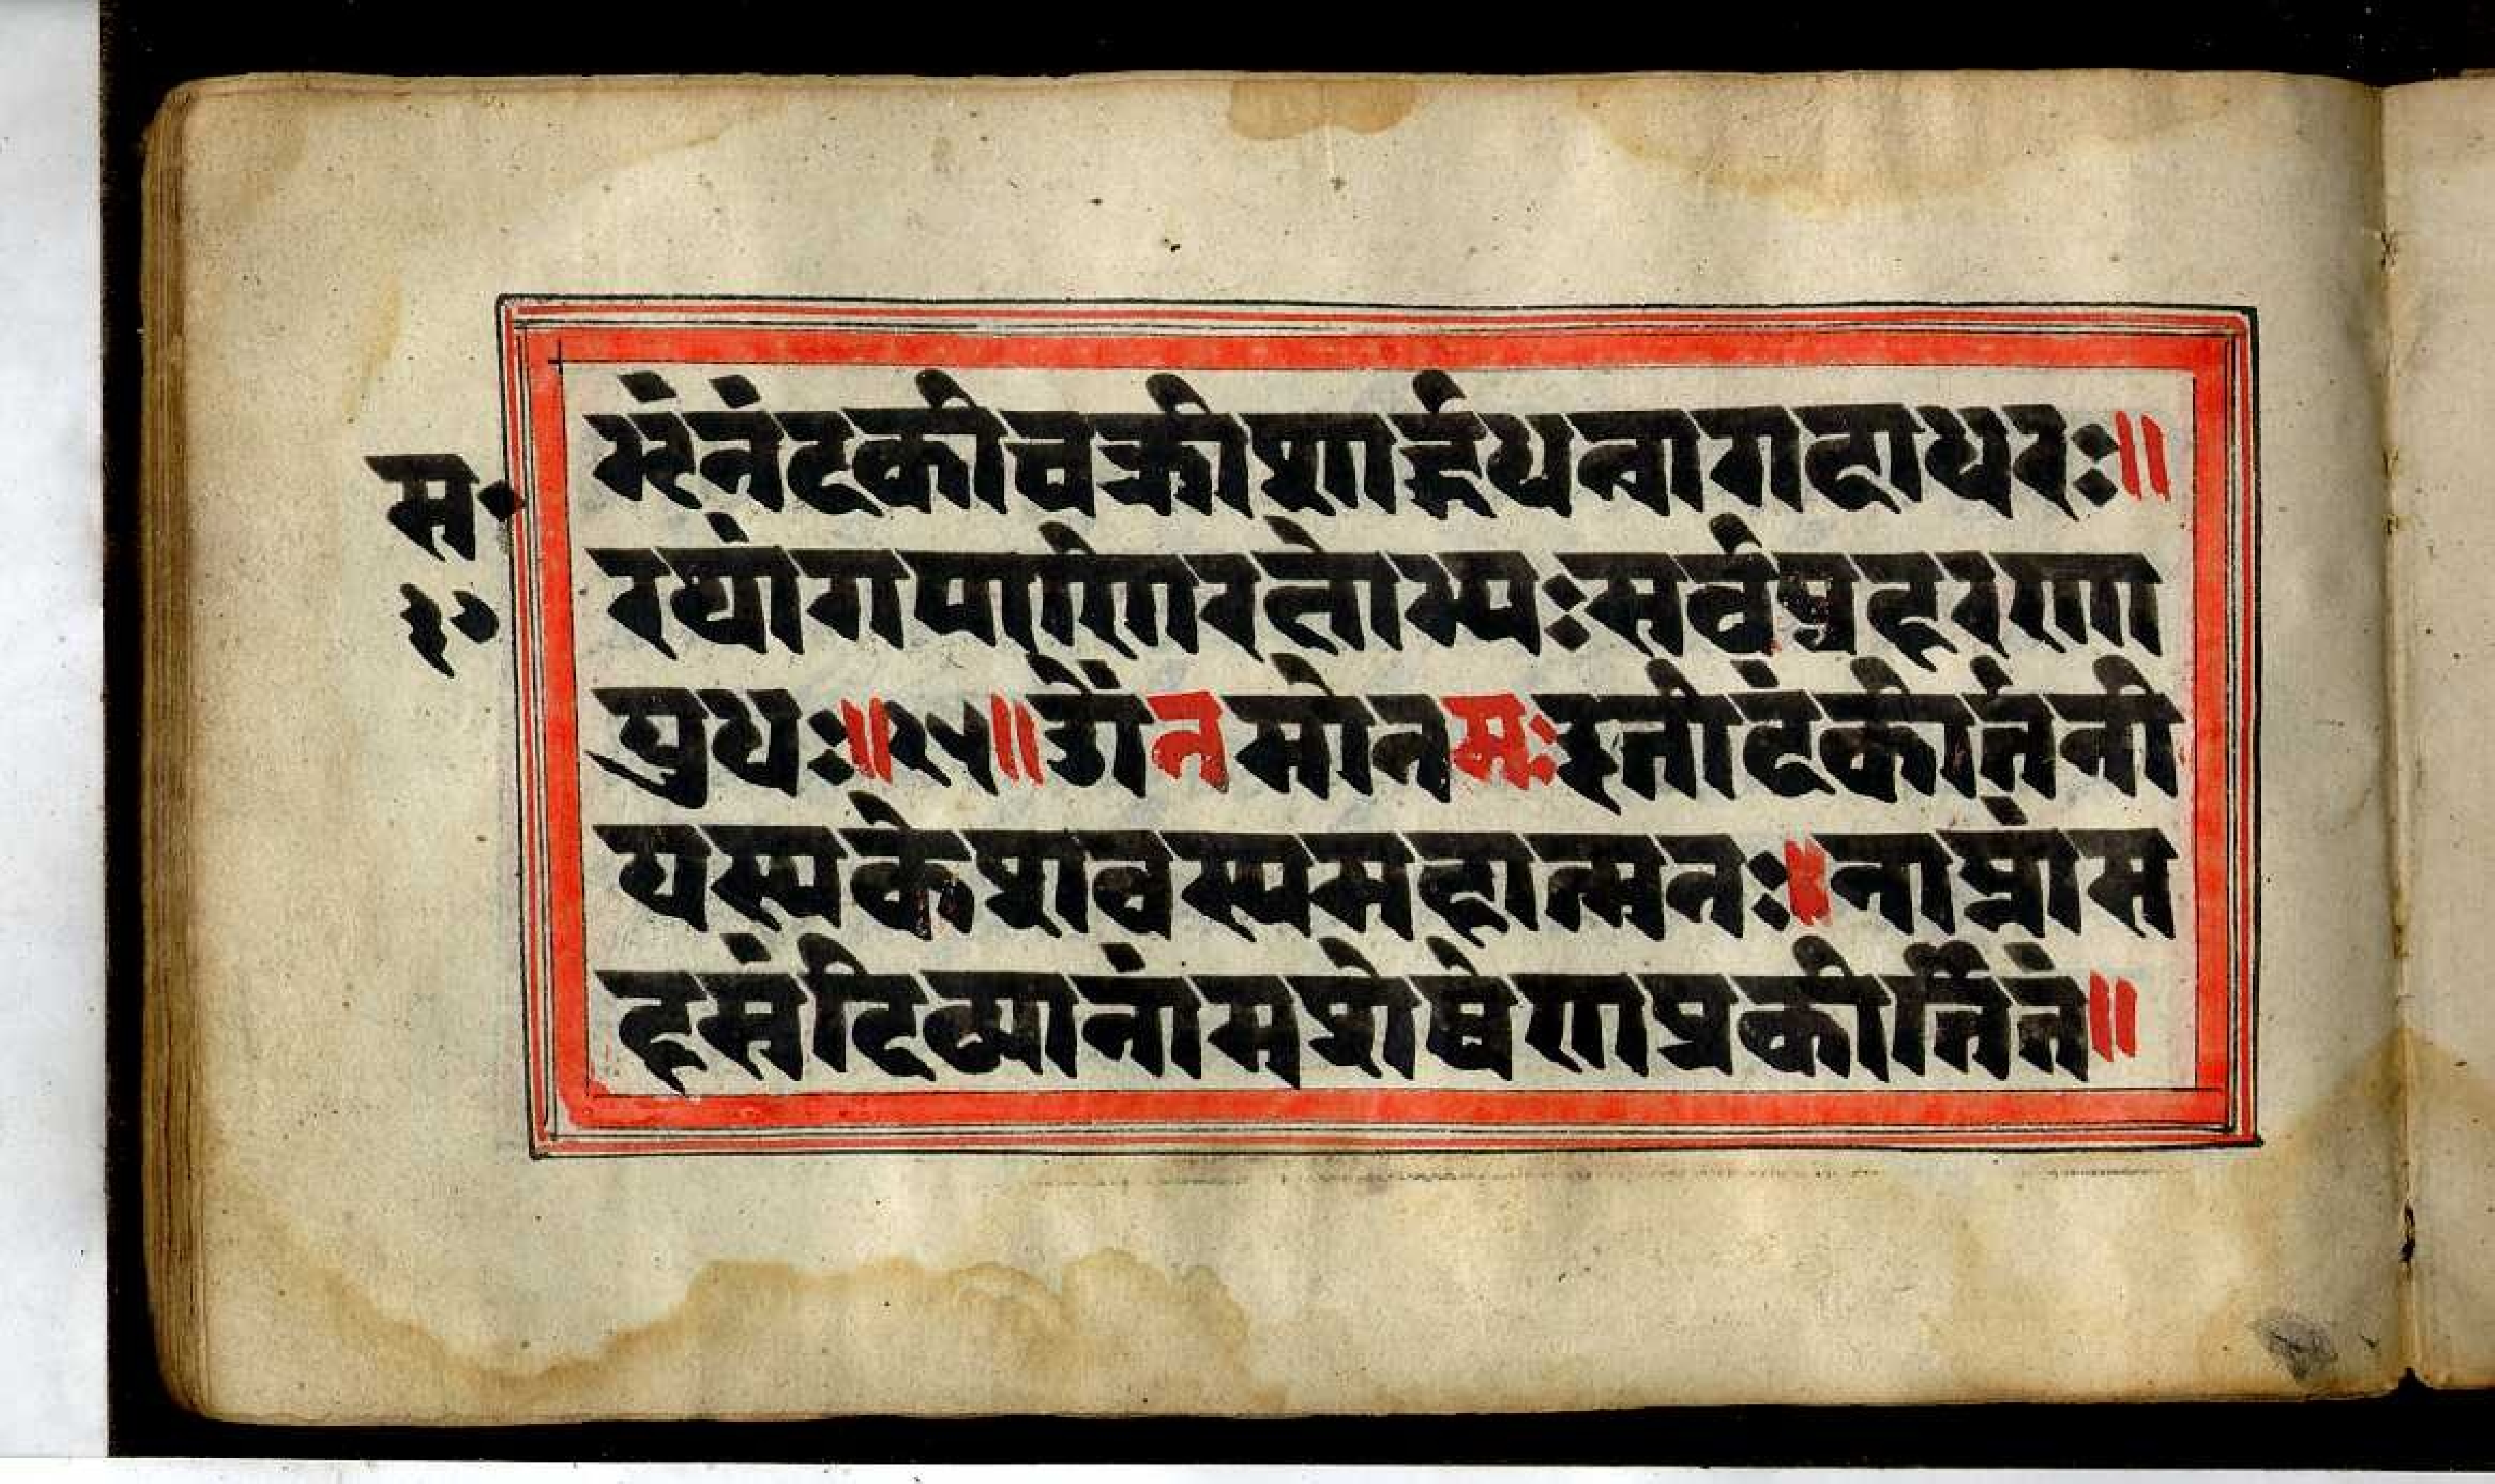 भृंनंदकीचक्रीशार्ङ्गधन्वागदाधरः॥
स॰
रथांगपाणिरक्षोभ्यः सर्वप्रहरणा
३०
युधः॥२५॥ ॐ नमोनमः इतीदंकीर्तनी
यस्यकेशवस्यमहात्मनः॥ नाम्नांस
हस्रंदिव्यानांमशेषेणप्रकीर्तितं॥